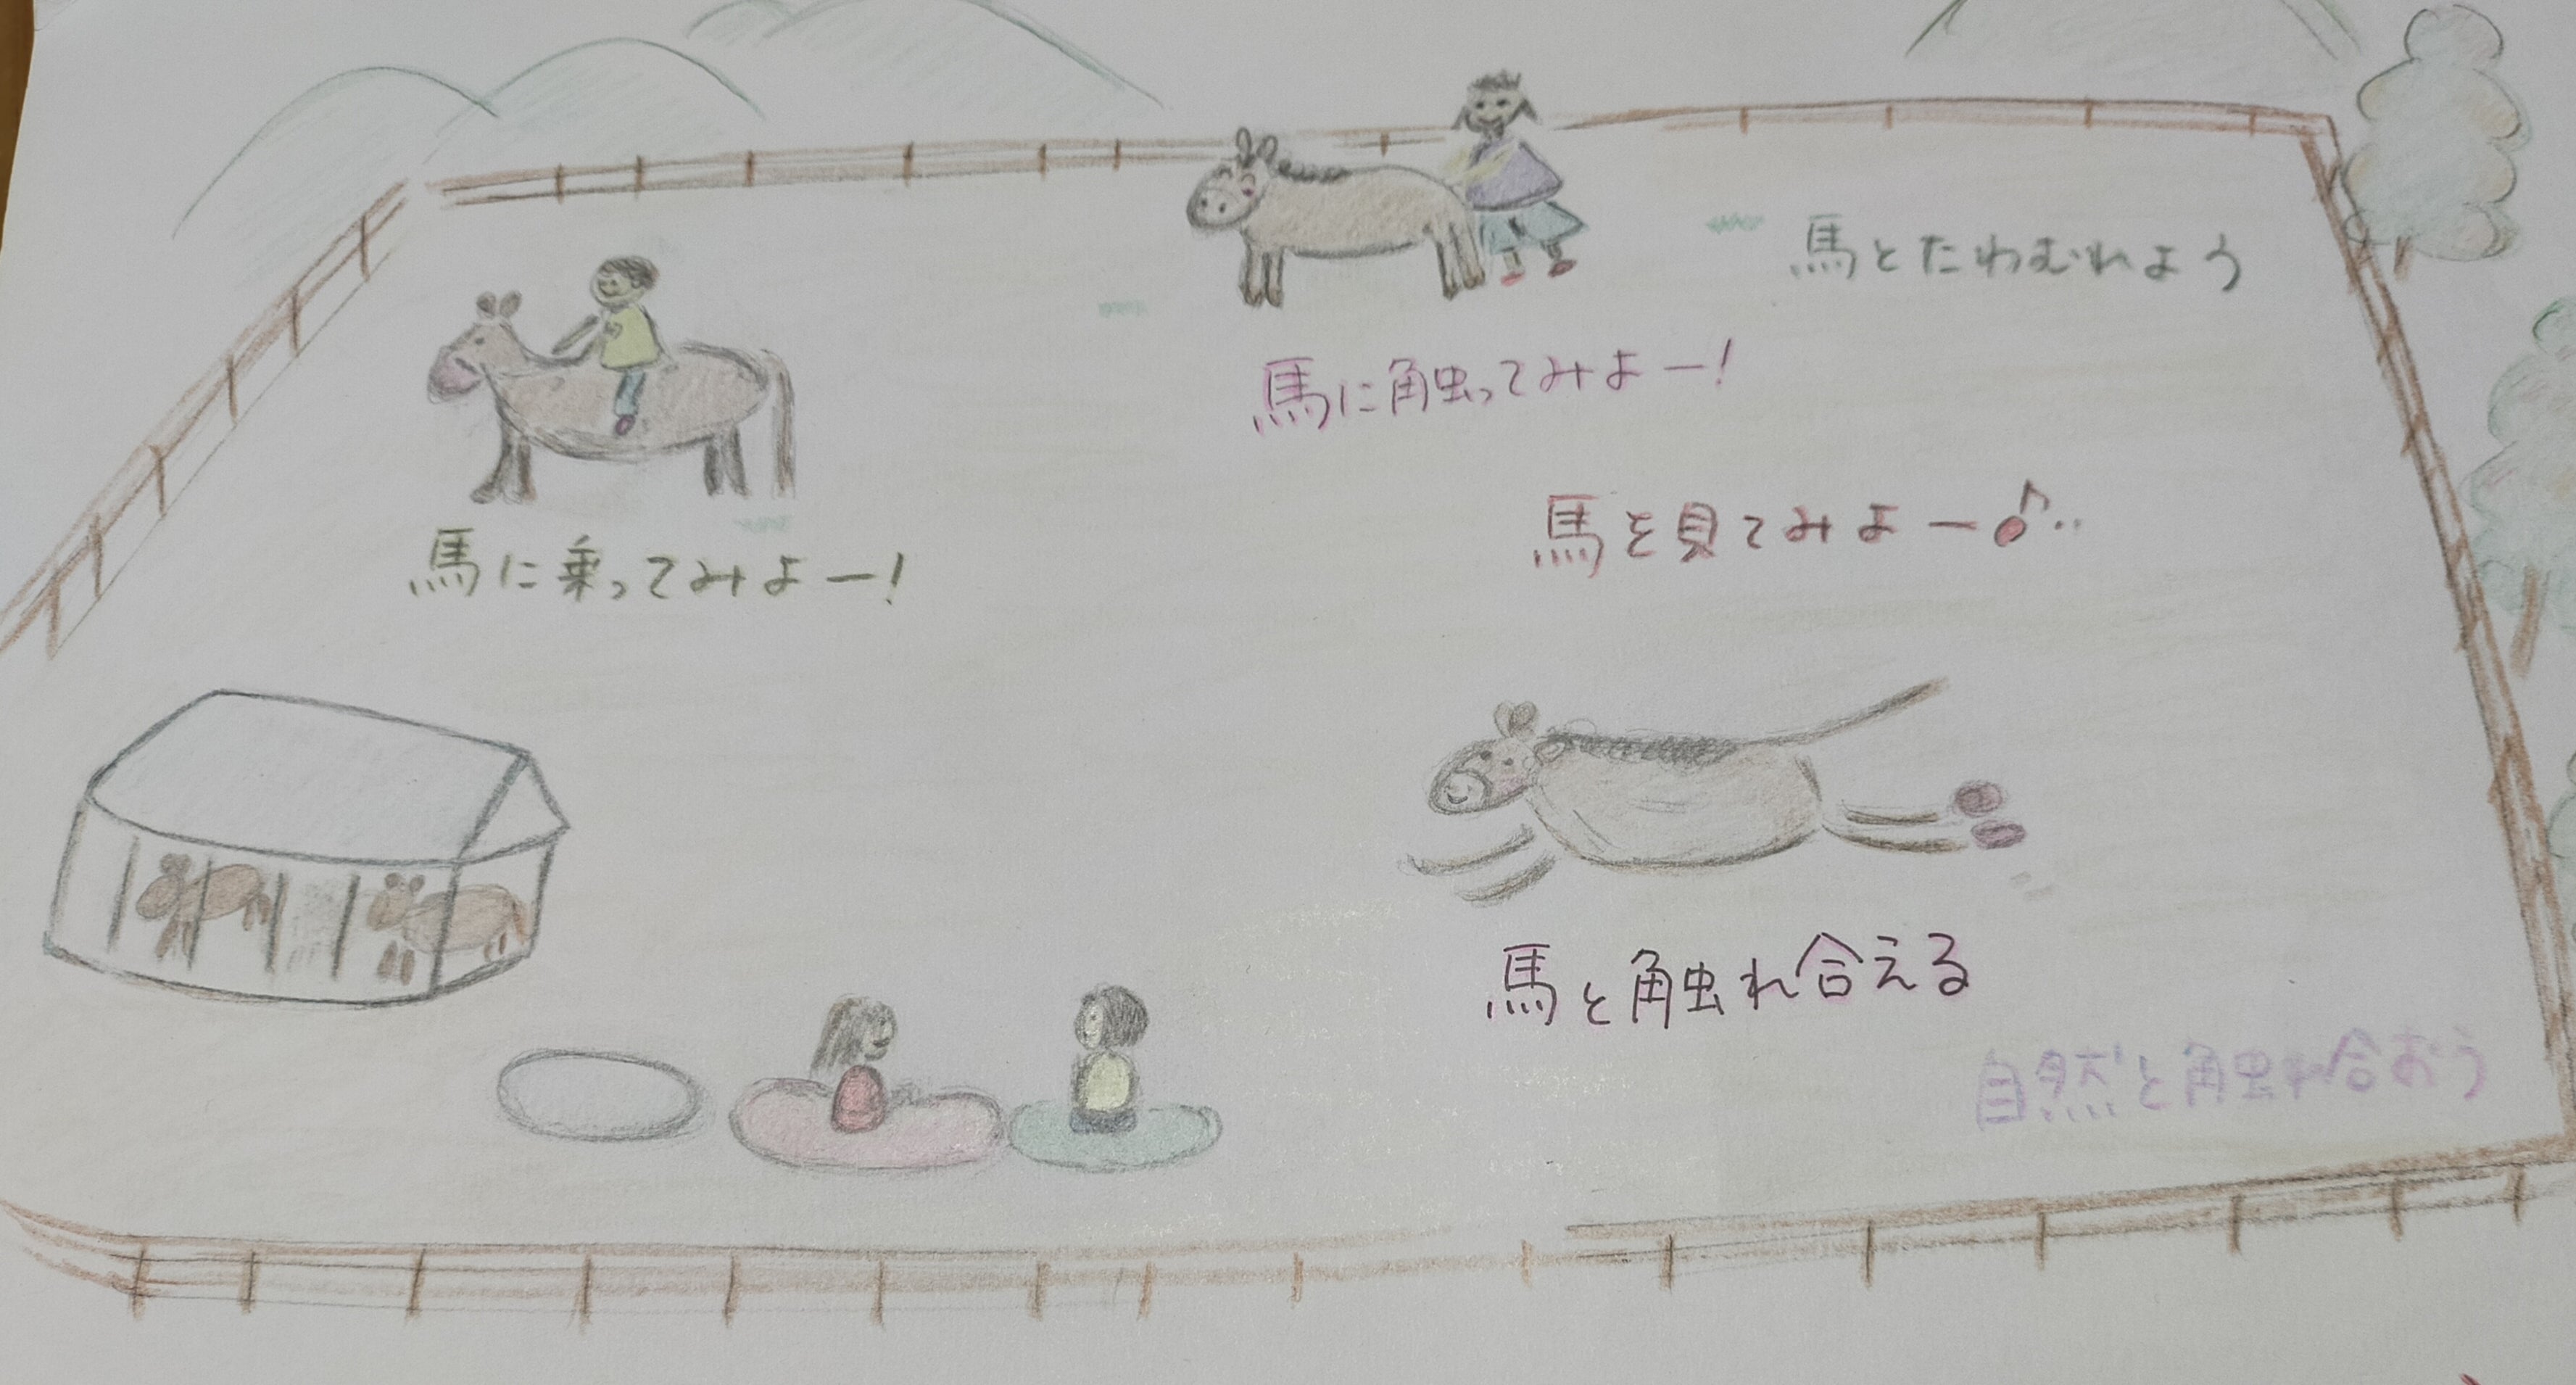 馬とたわむれよう
馬に触ってみよー!
馬を見てみよー♪..
馬に乗ってみよー!
馬と触れ合える
自然と触れ合おう